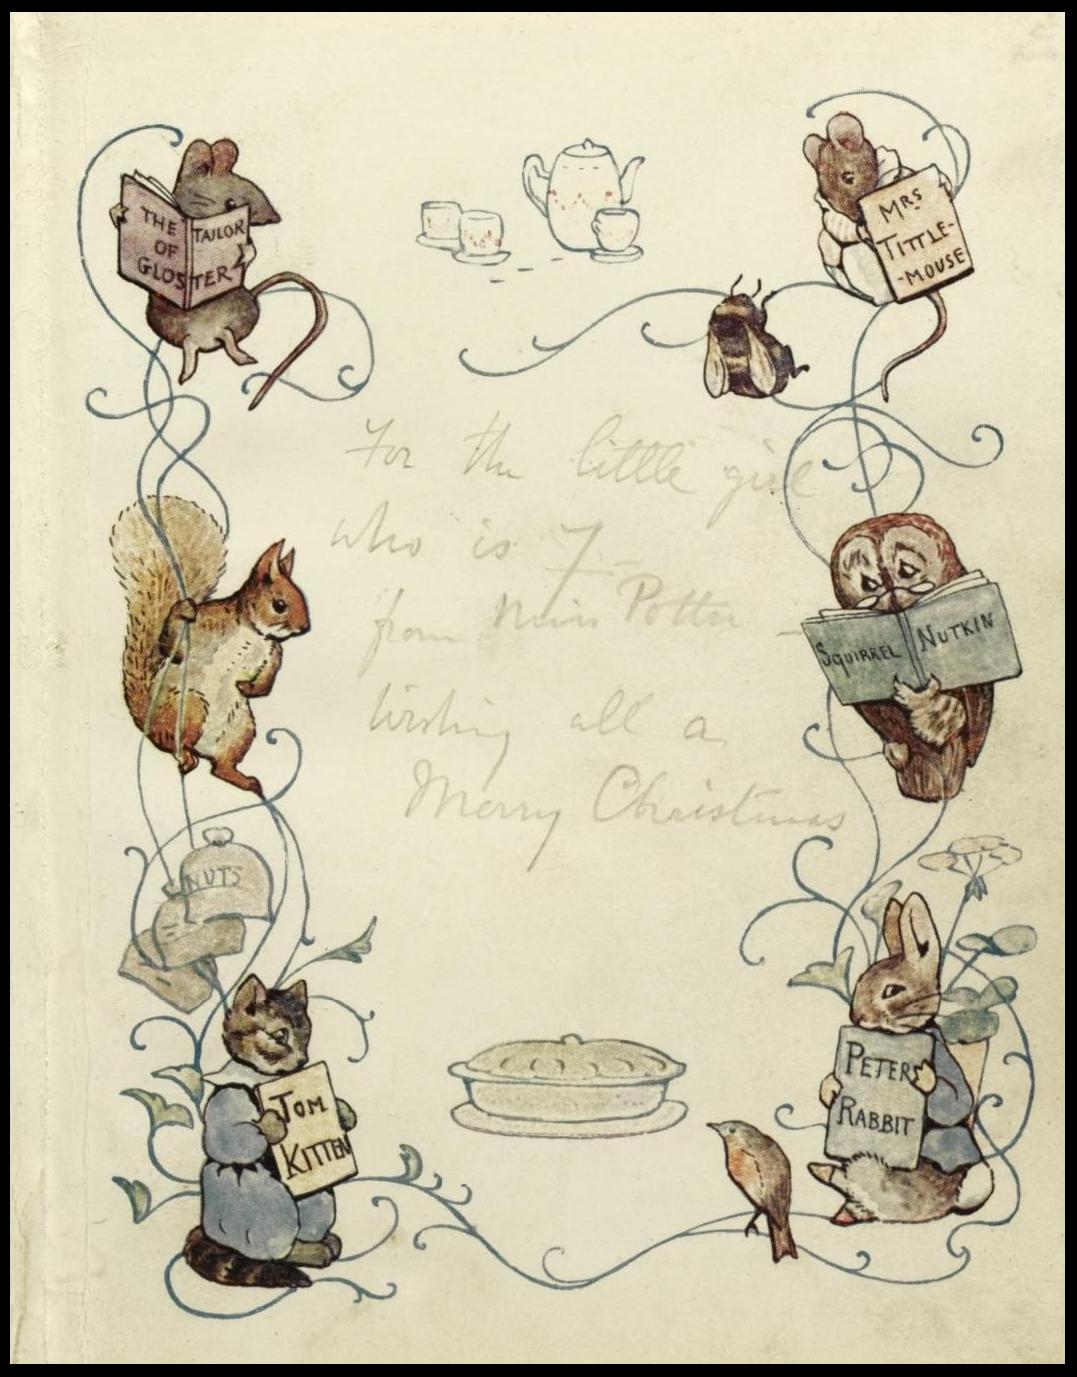 THE TAILOR
OF
GLOSTER
MRS
TITTLE-
-MOUSE
For the little girl
who is 7
from Miss Potter —
wishing all a
Merry Christmas
SQUIRREL NUTKIN
NUTS
TOM
KITTEN
PETER
RABBIT